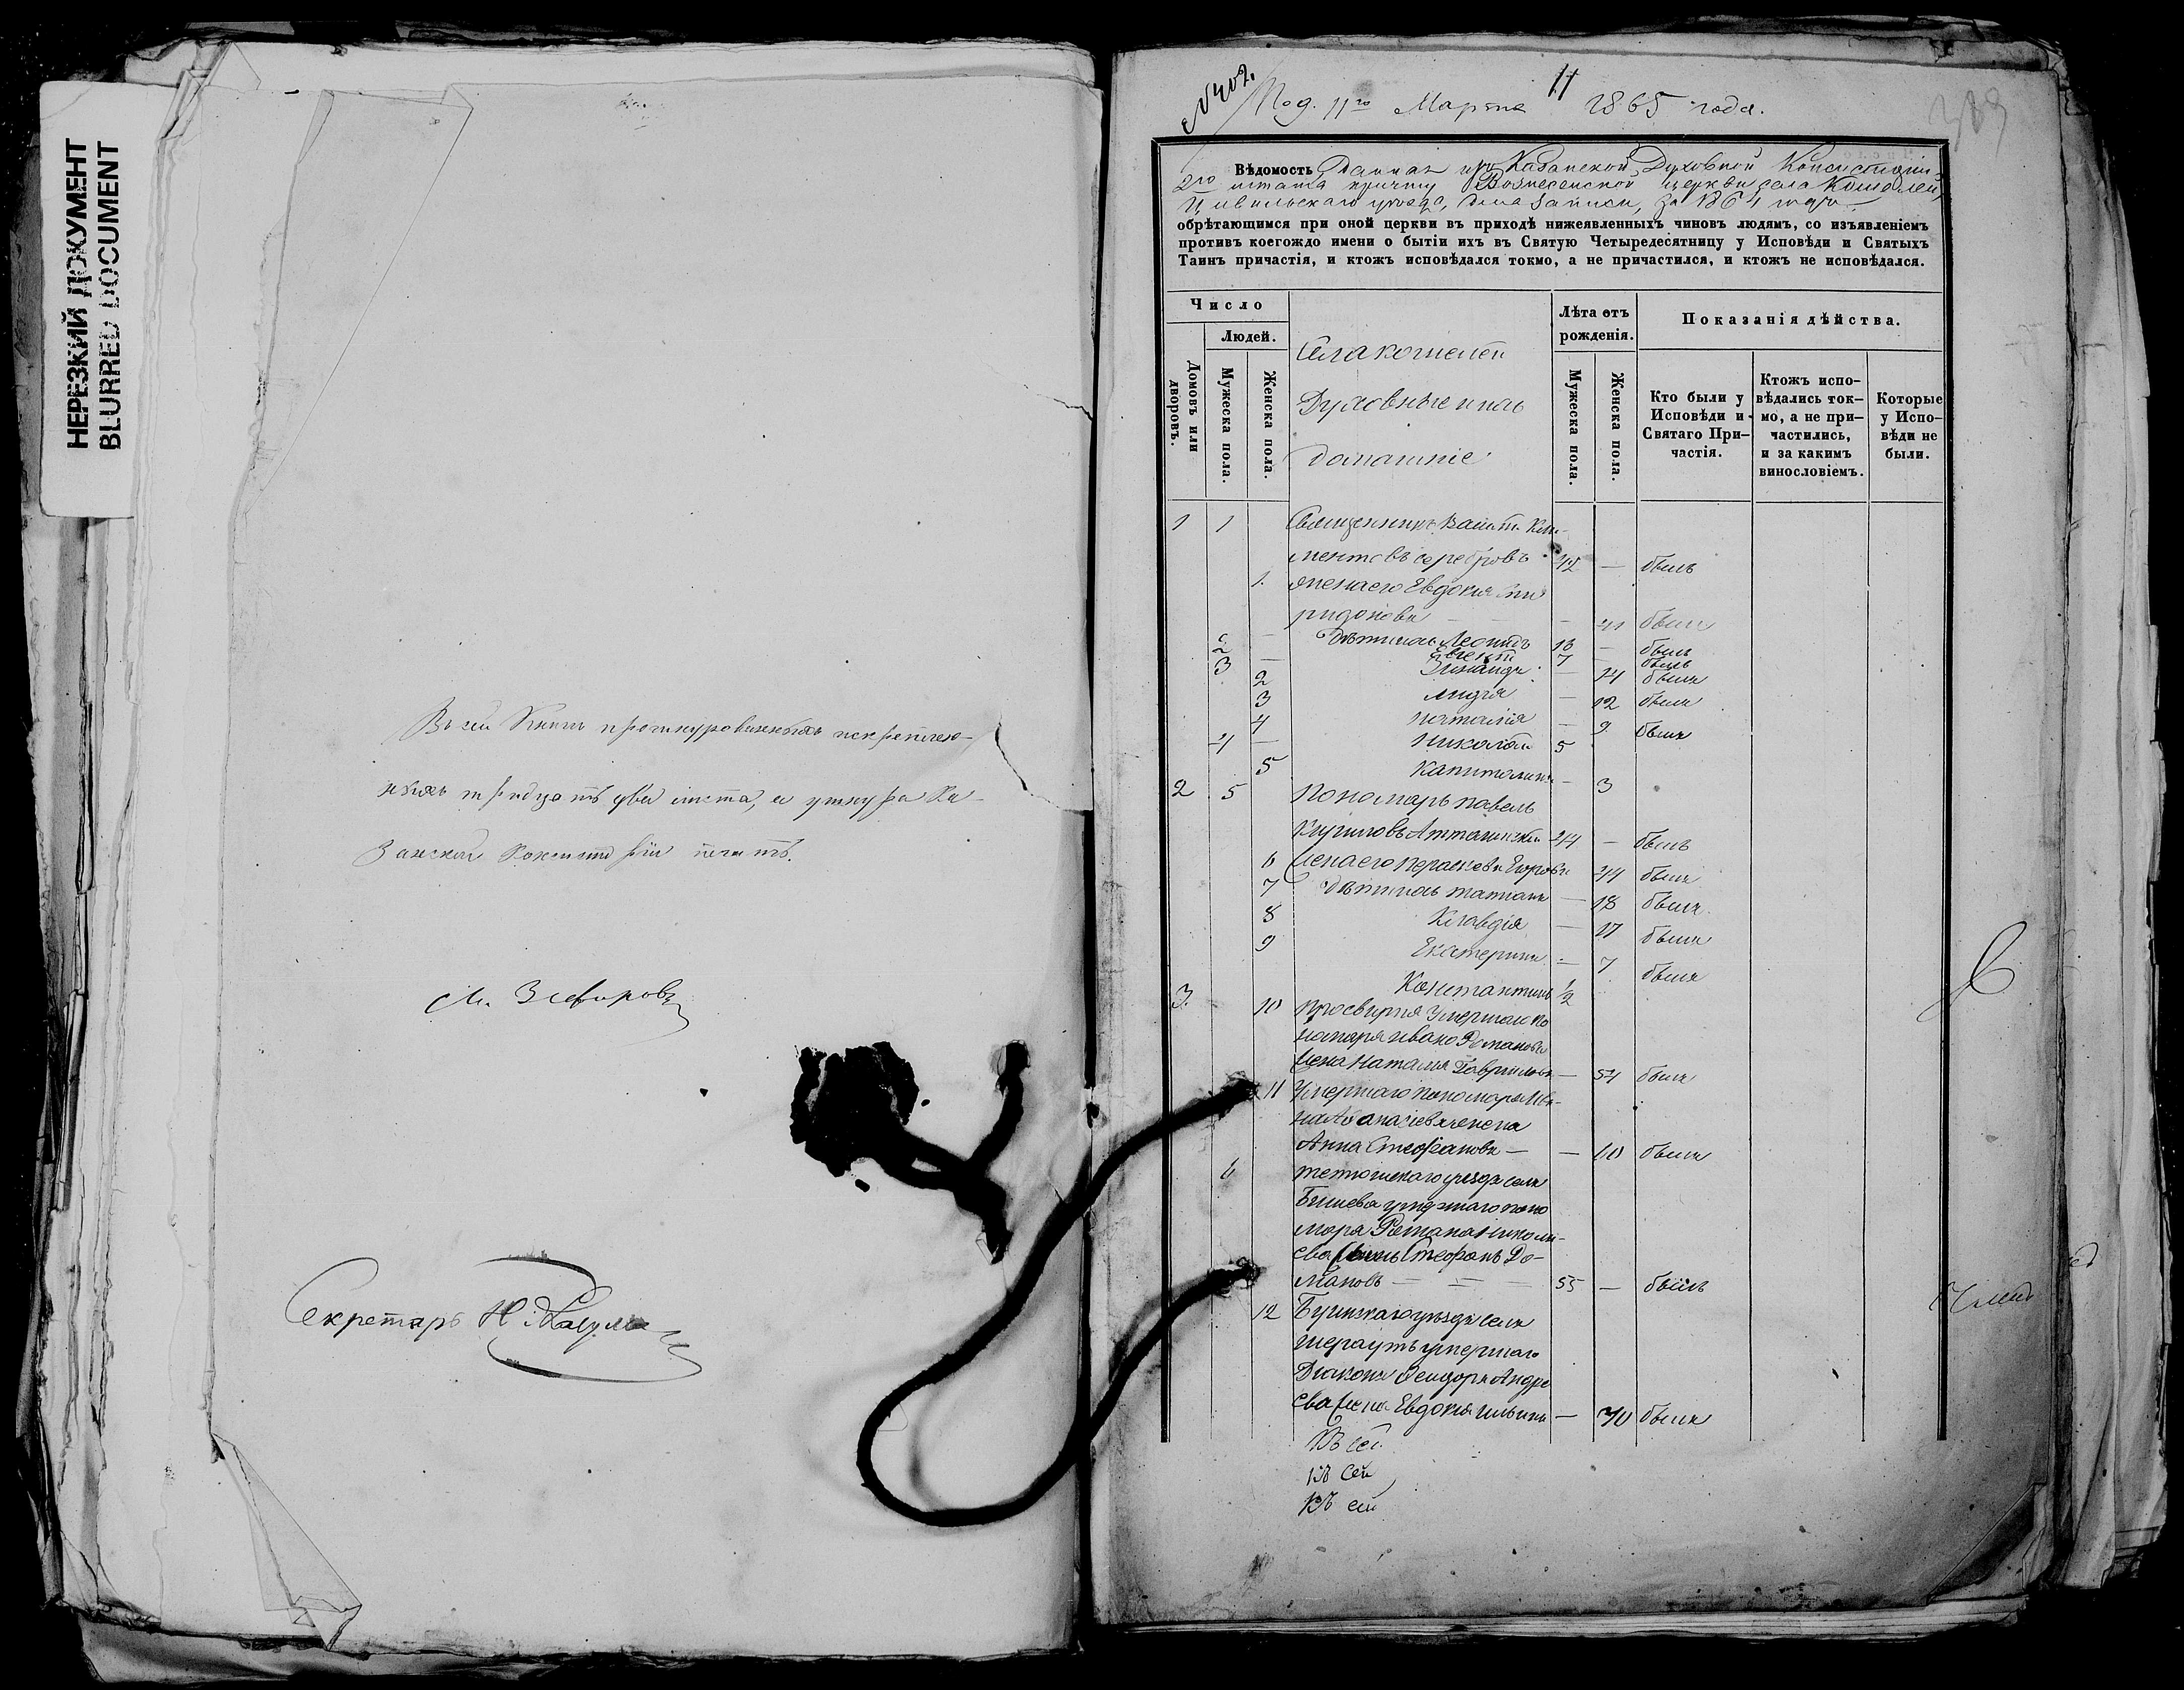 НЕРЕЗКИЙ ДОКУМЕНТ
BLURRED DOCUMENT
Въ сей Книгѣ прошнурованныхъ и скрѣплен-
ныхъ тридцать два листа, у шнура Ка-
занской Консисторіи печать.
Секретарь Н.
№ 402.
Под. 11го Марта 1865 года.
11
Вѣдомость Данная изъ Казанской Духовной Консисторіи
2го штата причту Вознесенской церкви села Кошелеи,
Цивильскаго уѣзда, для записи, за 1864 годъ
обрѣтающимся при оной церкви въ приходѣ нижеявленныхъ чиновъ людямъ, со изъявленіемъ
противъ коегождо имени о бытіи ихъ въ Святую Четыредесятницу у Исповѣди и Святыхъ
Таинъ причастія, и ктожъ исповѣдался токмо, а не причастился, и ктожъ не исповѣдался.
Число
Домовъ или дворовъ.
Людей.
Мужеска пола.
Женска пола.
Села Кошелей
Духовные и ихъ
домашніе
Лѣта отъ рожденія.
Мужеска пола.
Женска пола.
Показанія дѣйства.
Кто были у Исповѣди и Святаго При-частія.
Ктожъ испо-вѣдались ток-мо, а не при-частились, и за какимъ винословіемъ.
Которые у Испо-вѣди не были.
1 1 Священникъ
ментовъ Серебровъ 42 — былъ
1. жена его Евдокия Спи
ридонова — 41 была
2 — Дѣти ихъ Леонидъ 13 — былъ
3 — 7 — былъ
2 Зинаида — 14 была
3 Лидія — 12 была
4 Наталія — 9 была
4 — Николай 5
5 Капитолина — 3
2 5 Пономарь Павелъ
Кириловъ 44 — былъ
6 Жена его Параскева Егорова 44 была
7 Дѣти ихъ Татіана — 18 была
8 Клавдія — 17 была
9 Екатерина — 7 была
Константинъ 1/2
3. 10 Просвирня Умершаго по
номаря Ивана Романова
жена Наталья Гаврилова — 54 была
11 Умершаго пономаря Ива-
на Аѳанасіева жена
Анна Стефанова — — 60 была
6 Тетюшскаго уѣзда села
умершаго поно
маря Романа Никола-
ева сынъ Стефанъ Ро-
мановъ — — — 55 — былъ
12 Буинскаго уѣзда села
Шераутъ умершаго
Діакона Ѳеодора Андре
ева жена Евдокія Ильина — 70 была
Къ сей
Къ сей
Къ сей